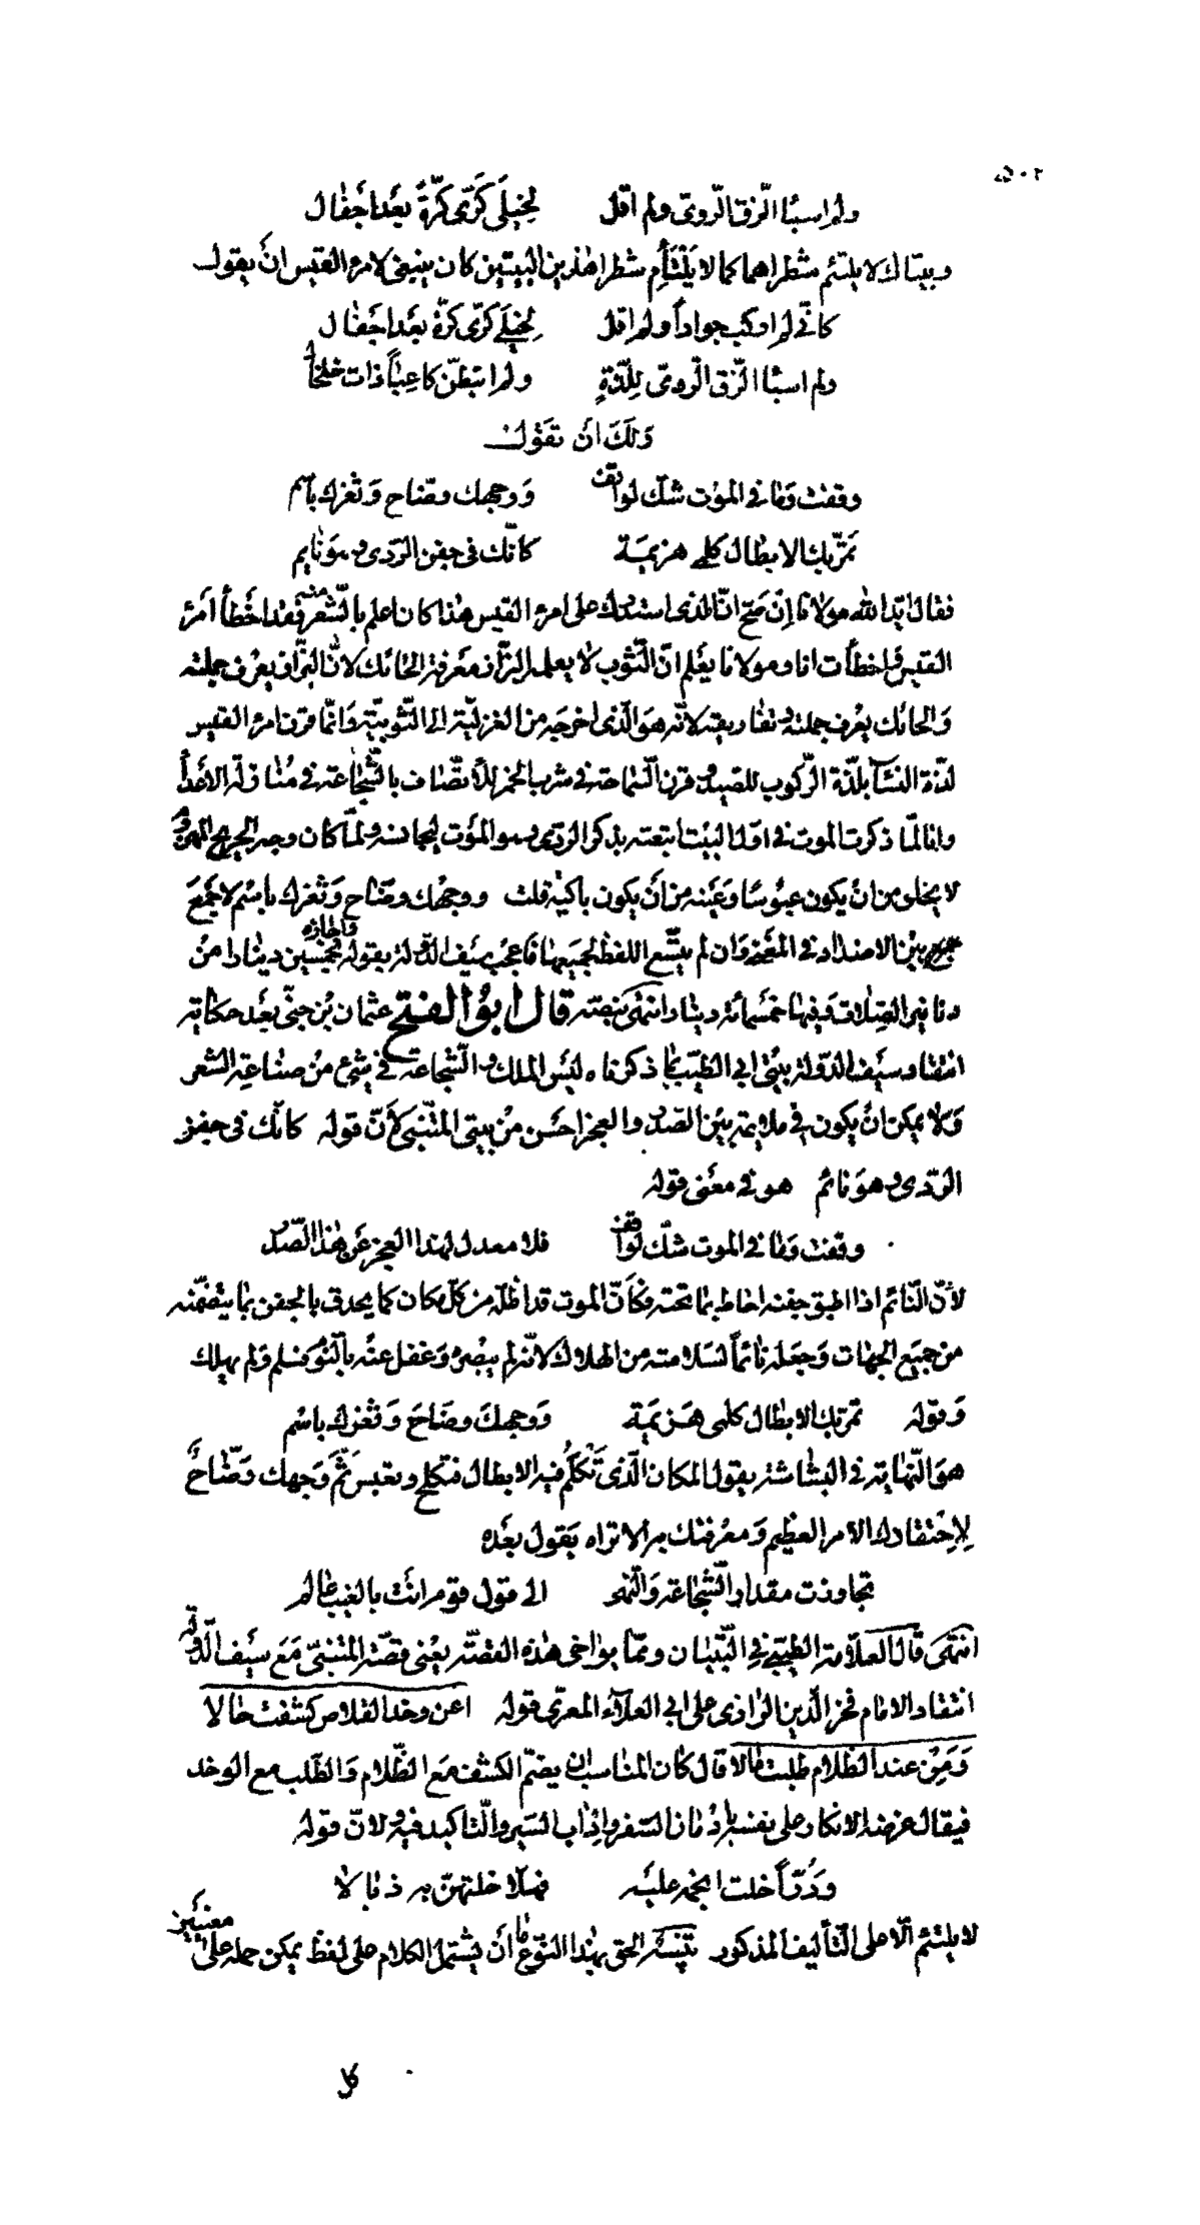 ولم اسبأ الزّق الرّويّ ولم اقل لخيلي كَرّي كَرّةً بَعْدَ اجْفال
وبيتاك لا يلتئم شطراهما كما لا يَلْتَئِم شطرا هذين البيتين كان ينبغي لامرء القيس ان يقول
كانّي لم اركب جواداً ولم اقل لِخيلي كرّي كرّةً بَعْدَ اجْفال
ولم اسبأ الزّق الرّويّ لِلَذّةٍ ولم اتبطّن كاعِباً ذات خلخال
وَلَكَ انْ تقول
وقفت وَما في الموت شكّ لواقف وَوجهك وضّاح وَثغرك باسم
تمرّ بك الابطال كلمى هزيمة كانّك في جفن الرّدى وهو نايم
فقال ايّد الله مولانا اِن صَحّ انّ الّذي استدرك على امرء القيس هذا كان اعلم بالشّعر منه فقد اخْطأ امرء
القيس وَاخطأت انا ومولانا يعْلم انّ الثّوب لا يعلمه البزّاز معرفة الحائك لانّ البزّاز يعْرف جملته
وَالحائك يعْرف جملته وتفاريقه لانّه هوَ الّذي اخرجه من الغزليّة الى الثّوبيّة وَانّما قرن امرء القيس
لذّة النسآء بلذّة الرّكوب للصيد وقرن السّماحة في شرب الخمر للأضياف بالشّجاعة في مُنازلة الأعدآء
وانا لمّا ذكرت الموت في اوّل البيْت اتبعته بذكر الردى وهو المؤت ليجانسه ولمّا كان وجه الجريح المهزوم
لا يخلو من انْ يكون عبُوسًا وَعَينه من انْ يكون باكية قلت ووجهُك وضّاح وَثغرك باسم لاجْمَعَ
بيْن الاضداد في المعْنى وَان لم يتّسع اللفظ لجميعها فاعجب سَيْف الدّولة بقوله واجازه بخمسين دينارا منْ
دنانير الصِلات وَفيها خمسمائة دينار انتهى بنصّه قال ابوُ الفتح عثمان بْن جنّي بعْد حكاية
انتقاد سيْف الدّولة بيتيْ ابي الطيّب كما ذكرناه ليْس الملك والشّجاعة في شيء منْ صناعة الشعر
وَلا يمكن انْ يكون في ملايمة بيْن الصّدر والعجز احْسن منْ بيتي المتنبّي لأنّ قوله كانّك في جفن
الرّدى وهو نائم هو في معْنى قوله
وقفت وَما في الموت شكّ لواقف فلا معدل لهذا العجز عن هذا الصّدر
لأنّ النّائم اذا اطبق جفنه احاط بما تحته فكَأنّ الموت قد اظلّه من كلّ مكان كما يحدق بالجفن بما يتضمّنه
من جميع الجهات وَجعله نائماً لسلامته من الهلاك لانّه لم يبْصره وَغفل عنْه بالنّوْم فسلم وَلم يهلك
وَقوله تمرّ بك الابطال كلمى هَزيمَة وَوجهكَ وضّاحَ وَثغرك باسْم
هوَ النّهاية في البشاشة يقول المكان الّذي تكلَم فيه الابطال فتكلح وتعبس ثَمّ وَجهك وَضّاحٌ
لِاحْتقارك الأمر العظيم وَمعْرفتك به ألا تراه يَقول بعْده
تجاوزت مقدار الشّجاعة وَالنّهى الى قول قوم انتَ بالغيب عالم
انتهى قال العلاّمة الطّيبيّ في التّبيان وممّا يواخي هذه القصّة يعْني قصّة المتنبّي مَعَ سيْف الدّولة
انتقاد الامام فخر الدّين الرّازي على ابي العلآء المعرّي قوله اعن وخد القلاص كشفت حالا
وَمِنْ عند الظلام طلبت مالا قال كان المناسب ان يضمّ الكشف مع الظّلام وَالطّلب مع الوخد
فيقال غرضه الانكار على نفسه بادْمان السّفر وادْاب السّير والتّاكيد فيه ولانّ قوله
وَدُرّاً خلت انجمه عليْه فهلّا خلتهنّ به ذبالا
لا يلتئم الّا على التّأليف المذكور تنبيه الحق بهذا النّوع ما انْ يشتمل الكلام على لفظ يمكن حمله على معنيين
كل